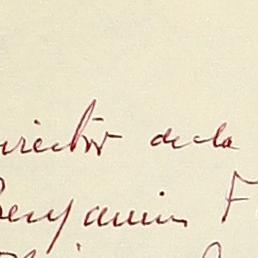 Director de la
Benjamin F